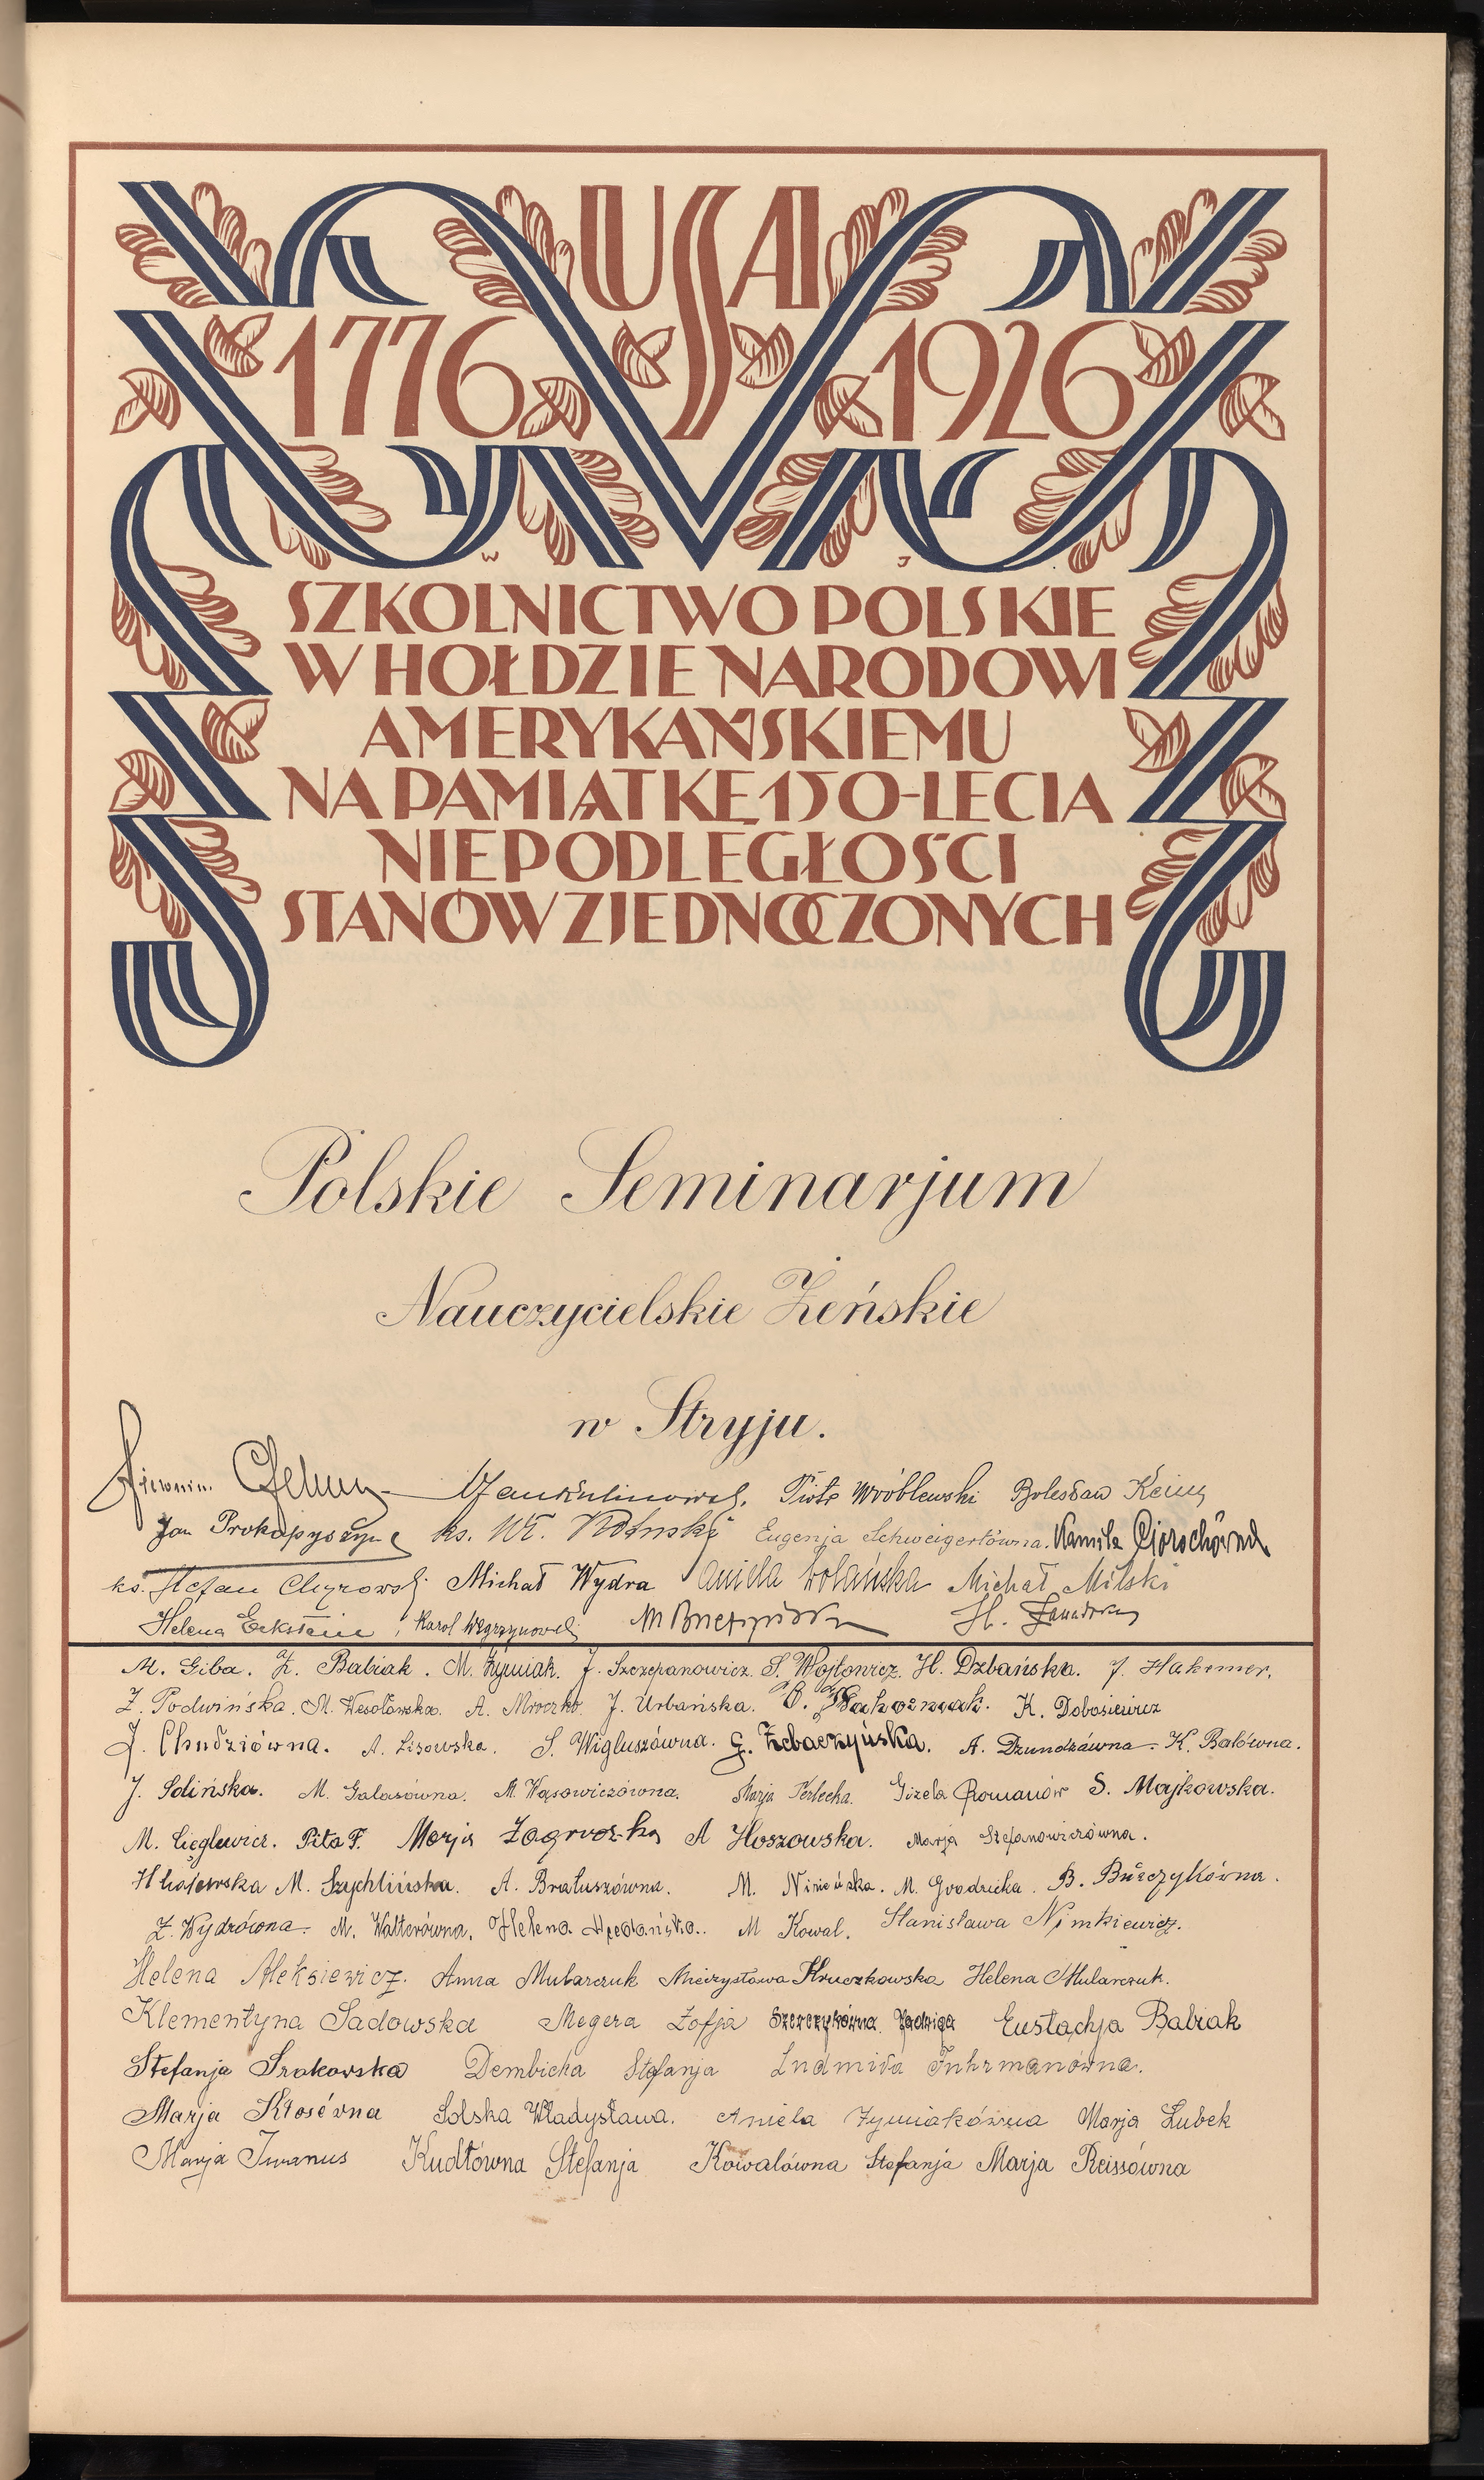 USA
1776 1926
W J
SZKOLNICTWO POLSKIE
W HOŁDZIE NARODOWI
AMERYKAŃSKIEMU
NA PAMIĄTKĘ 150-LECIA
NIEPODLEGŁOŚCI
STANÓW ZJEDNOCZONYCH
Polskie Seminarjum
Nauczycielskie Żeńskie
w Stryju.
Piotr Wróblewski Bolesław
Jan ks. Wł. Eugenja Schweigertówna. Kamila
ks. Stefan Michał Wydra Aniela Wolańska Michał Milski
Helena Karol H.
M. Giba. Z. Babiak. M. Żymiak. J. Szczepanowicz. S. Wojtowicz. H. Dzbańska. J.
Z. Podwińska. M. Wesołowska. A. Mroczko J. Urbańska. K. Dobosiewicz
J. Chudziówna. A. Lisowska. S. Wigluszówna. G. Zebaczyńska. A. Dzundzówna. K. Balówna.
J. Solińska. M. Galasówna. M. Wąsowiczówna. Marja Perlecka. Gizela Romanów S. Majkowska.
M. Cieglewicz. Pita F. Marja A Hoszowska. Marja Stefanowiczówna.
M. Szychlińska. A. Bratuszówna. M. M. B.
Z. Wydrówna. M. Walterówna. Helena M Kowal. Stanisława Nimkiewicz.
Helena Aleksiewicz. Anna Mularczuk Mieczysława Kruczkowska Helena Mularczuk.
Klementyna Sadowska Megera Zofja Szczerzykówna Jadwiga Eustachja Babiak
Stefanja Srokowska Dembicka Stefanja Ludmiła Fuhrmanówna.
Marja Kłosówna Solska Władysława. Aniela Żymiakówna Marja Lubek
Marja Iwanus Kudłowna Stefanja Kowalówna Stefanja Marja Reissówna